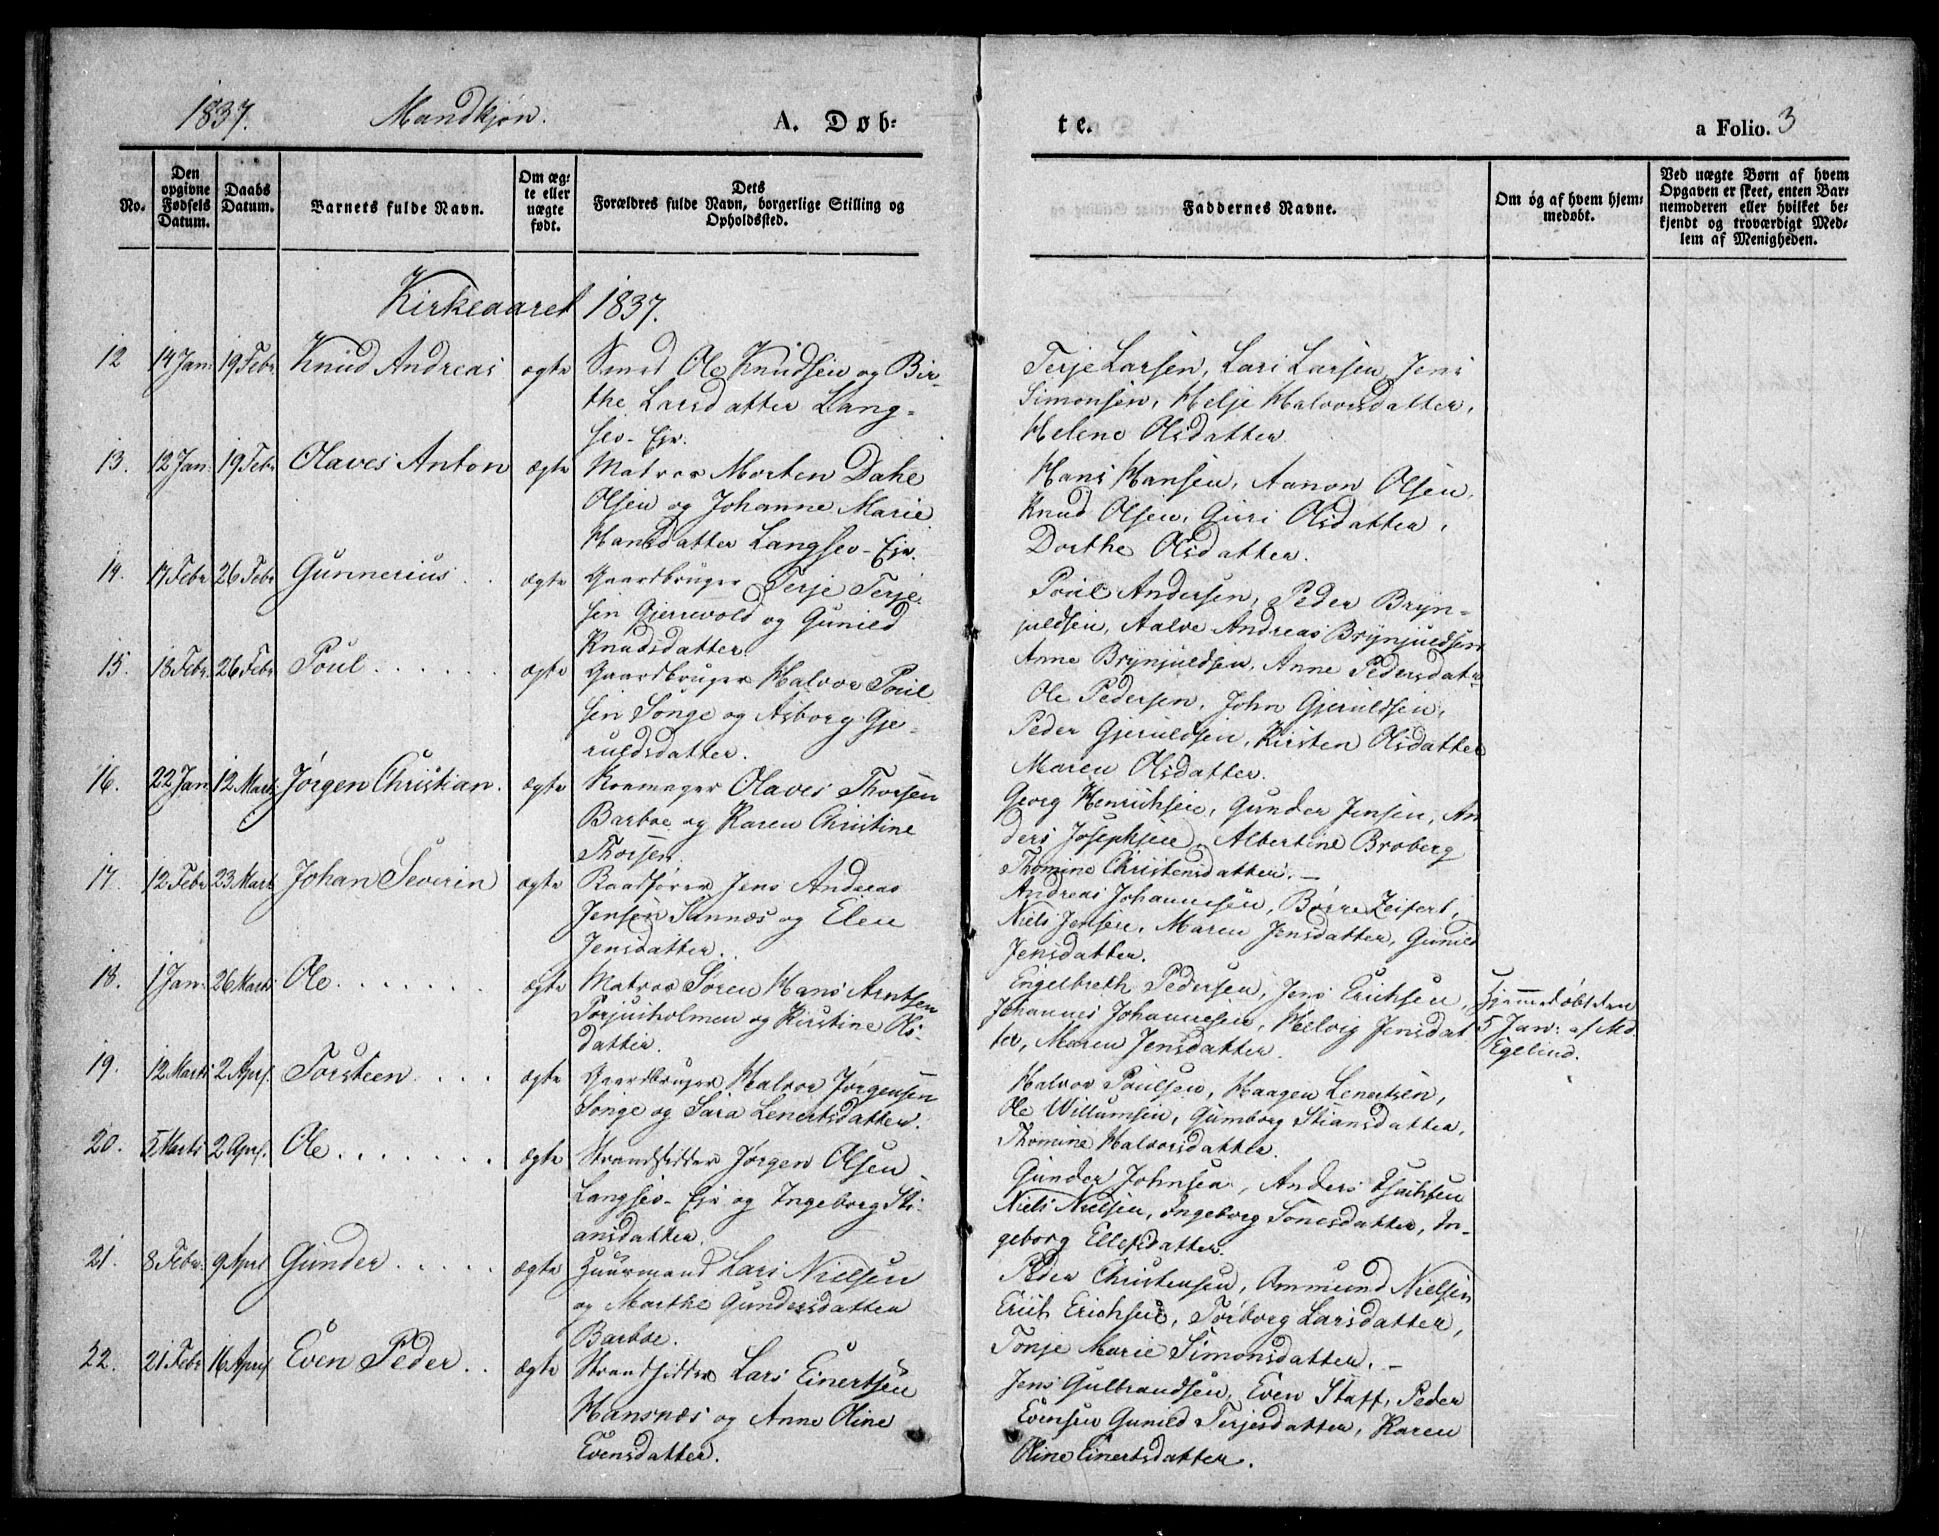 1837. Mandkjøn. A. Døb= te. a Folio. 3
No.
Den opgivne Fødsels Datum.
Daabs Datum.
Barnets fulde Navn.
Om æg= te eller uægte født.
Dets Forældres fulde Navn, borgerlige Stilling og Opholdssted.
Faddernes Navne.
Om og af hvem hjem= medøbt.
Ved uægte Børn af hvem Opgaven er skeet, enten Bar= nemoderen eller hvilket be= kjendt og troværdigt Med= lem af Menigheden.
Kirkeaaret 1837.
12 14 Jan: 19 Febr. Knud Andreas ægte Smed Ole Knudsen og Bir=
the Larsdatter Lang=
sev-Ejr.
Terje Larsen, Lars Larsen, Jens
Simonsen, Helje Halvorsdatter,
Helene Olsdatter
13. 12 Jan. 19 Febr Olaves Anton ægte Matros Morten Dahe
Olsen og Johanne Marie
Hansdatter Langsev-Ejr.
Hans Hansen, Aanon Olsen,
Knud Olsen, Guri Olsdatter,
Dorthe Olsdatter.
14. 17 Febr 26 Febr Gunnerius . . ægte Gaardbruger Terje Terje
sen Gjerrevold og Gunild
Knudsdatter
Poul Andersen, Peder Bryn=
juldsen, Aalve Andreas Brynjuldsen
Anne Brynjuldsen, Anne Pedersdatr
15. 18 Febr. 26 Febr. Poul . . . . . . ægte Gaardbruger Halvor Poul
sen Songe og Asborg Gje=
ruldsdatter.
Ole Pedersen, John Gjeruldsen,
Peder Gjeruldsen, Kirsten Olsdatter
Maren Olsdatter.
16. 22 Jan 12 Marts Jørgen Christian. ægte Kræmager Olaves Thorsen
Barboe og Karen Christine
Thorsen.
Georg Henrichsen, Gunder Jensen, An
ders Josephsen, Albertine Broberg
Thomine Christensdatter. —
17. 12 Febr 23 Marts Johan Severin ægte Baadfører Jens Andreas
Jensen Sannæs og Elen
Jensdatter.
Andreas Johannesen, Børre Zeifert,
Niels Jensen, Maren Jensdatter, Gunild
Jensdatter.
18. 1 Jan: 26 Marts Ole . . . . . . . ægte Matros Søren Hans Arntsen
Torjusholmen og Kirstine Ols=
datter.
Engelbreth Pedersen, Jens Erichsen,
Johannes Johannesen, Helvig Jensdat
ter, Maren Jensdatter.
Hjemmedøbt den
5 Jan: af Md
Egelund.
19. 12 Marts 2 Apr. Torsteen . . . . ægte Gaardbruger Halvor Jørgensen
Songe og Sara Lenertsdatter.
Halvor Poulsen, Haagen Lenertsen,
Ole Willumsen, Gumborg Stiansdatter,
Thomine Halvorsdatter.
20. 5 Marts 2 Apr. Ole . . . . . . . ægte Strandsidder Jørgen Olsen
Langsev-Ejr og Ingeborg Sti=
ansdatter.
Gunder Johnsen, Anders Isachsen
Niels Nielsen, Ingeborg Tonesdatter, In=
geborg Ellefsdatter.
21. 8 Febr. 9 April Gunder . . . . . ægte Huusmand Lars Nielsen
og Marthe Gundersdatter
Barboe.
Peder Christensen, Ammund Nielsen
Erich Erichsen, Torborg Larsdatter,
Tonje Marie Simonsdatter. —
22. 21 Febr 16 April Even Peder . . ægte Strandsidder Lars Einertsen
Hansnæs og Anne Oline
Evensdatter.
Jens Gulbrandsen, Even Staff, Peder
Evensen Gunild Terjesdatter, Karen
Oline Einertsdatter.